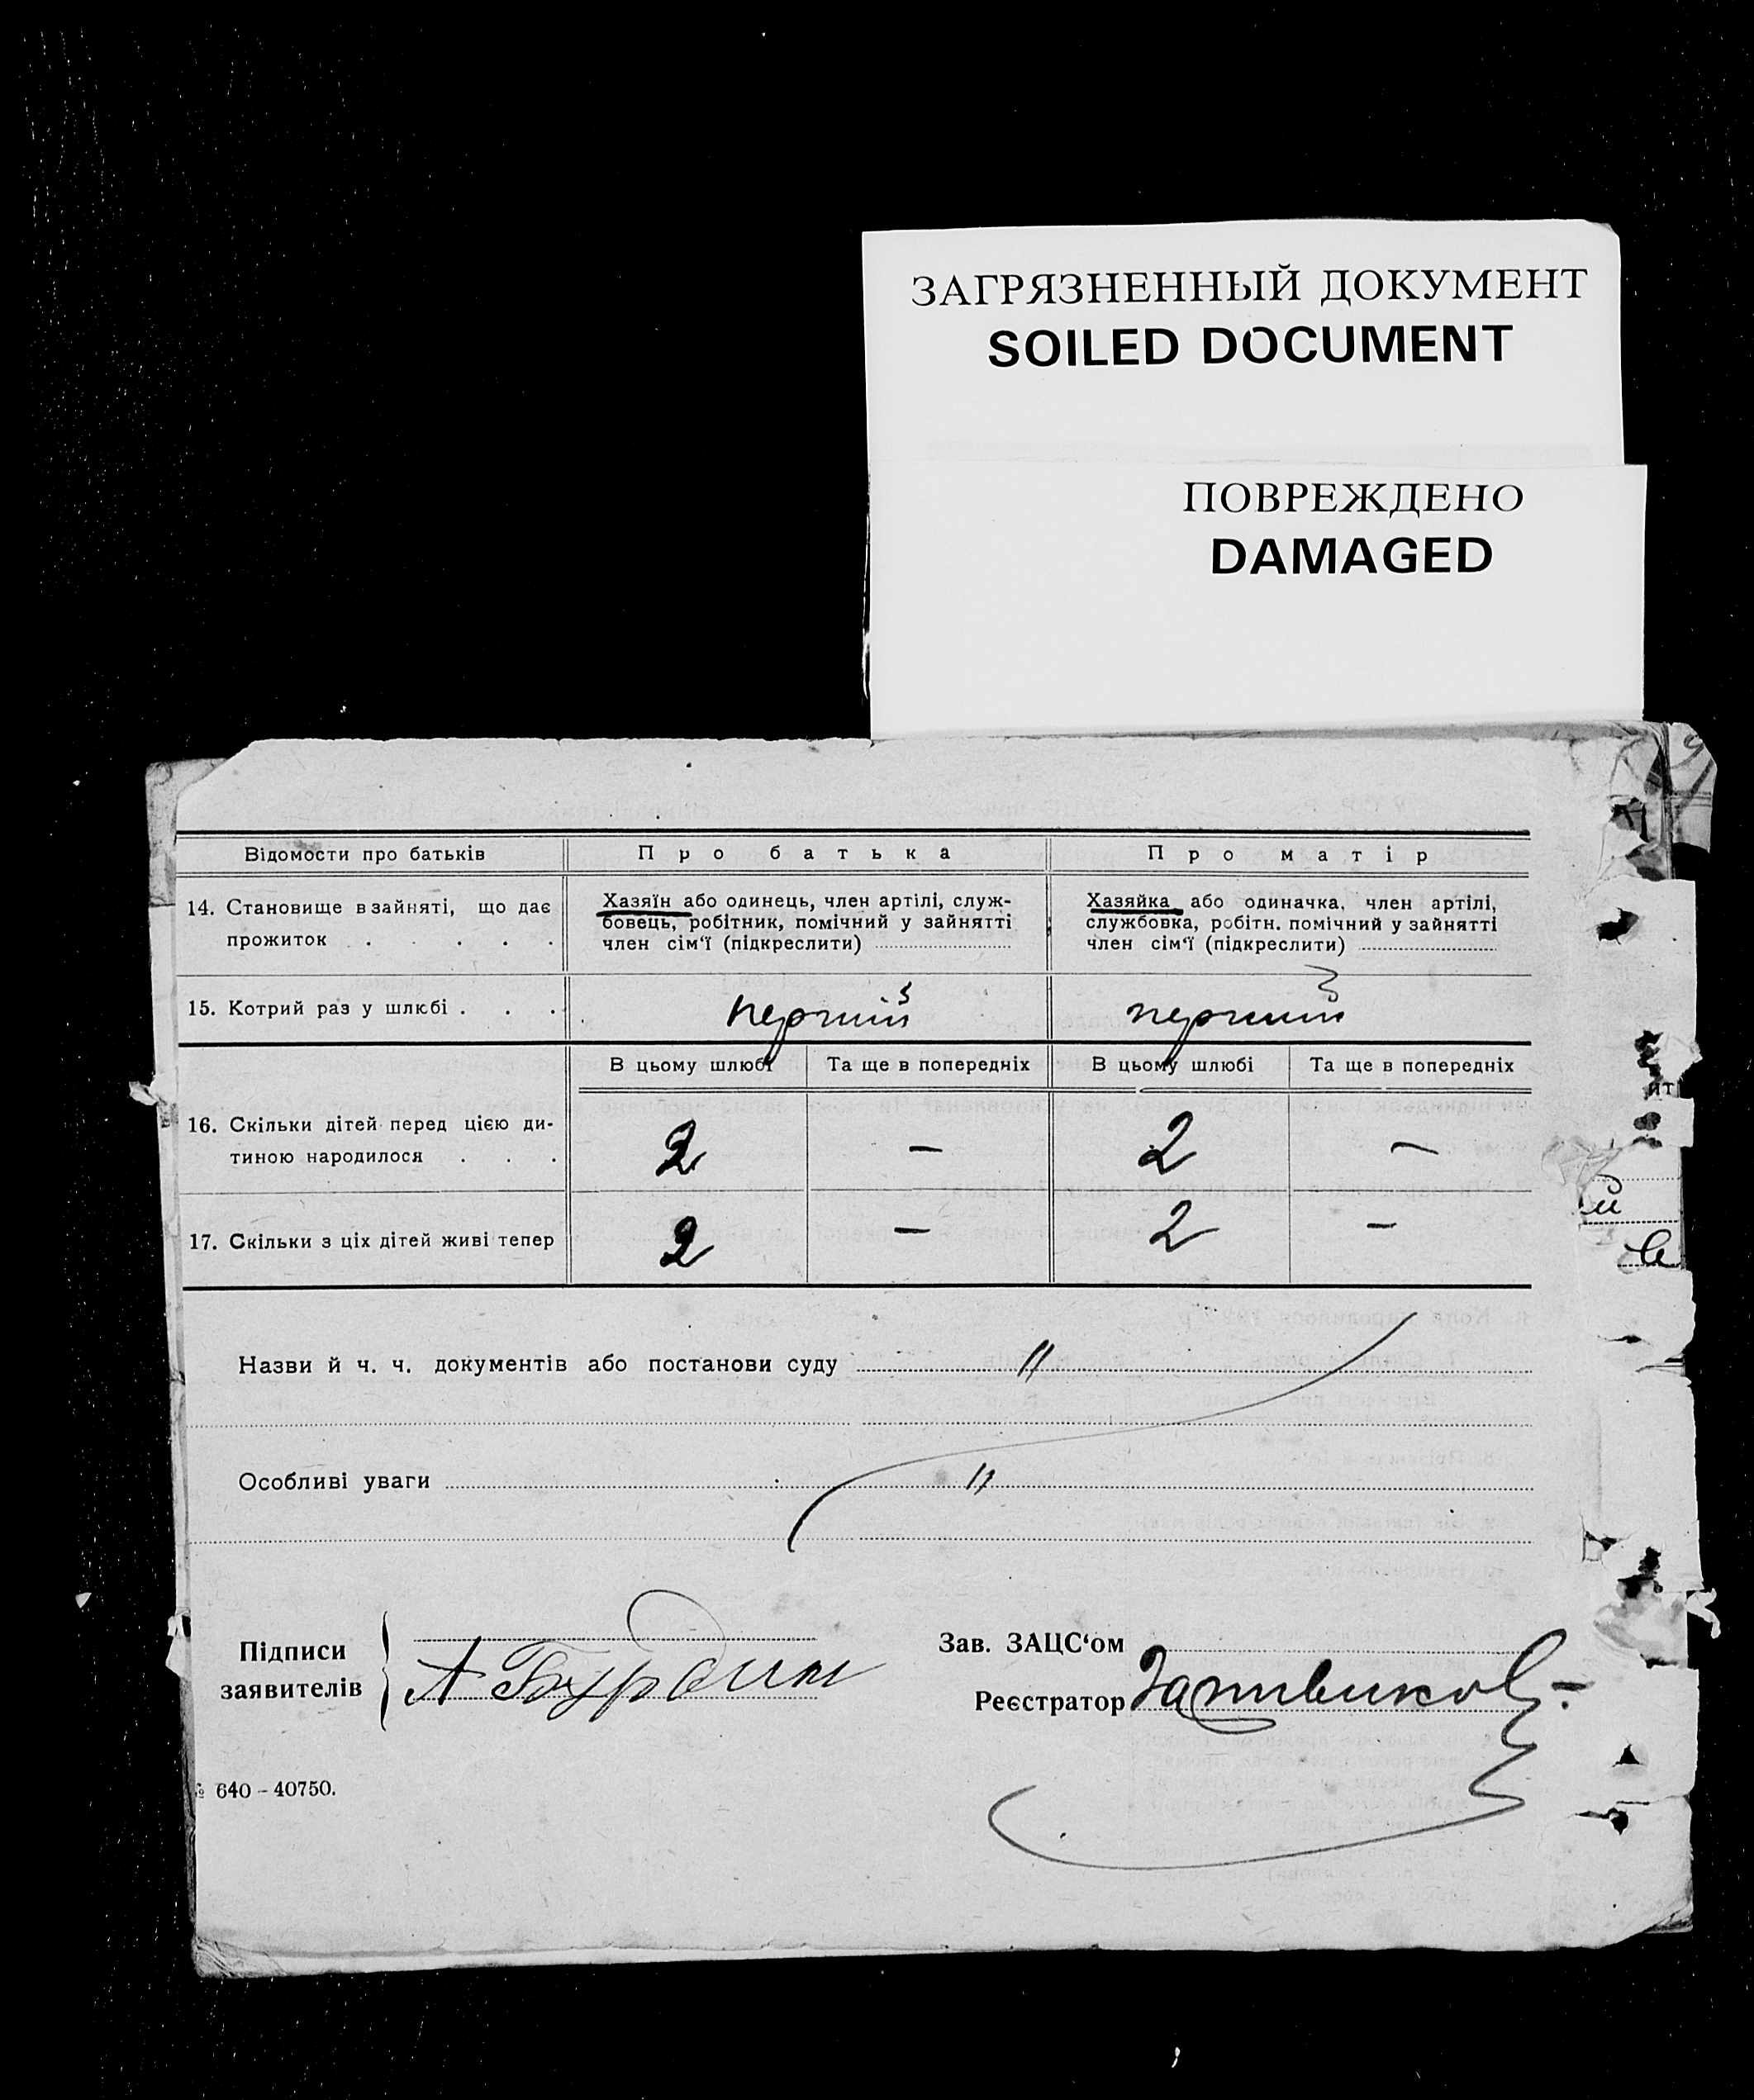 ЗАГРЯЗНЕННЫЙ ДОКУМЕНТ
SOILED DOCUMENT
ПОВРЕЖДЕНО
DAMAGED
Відомости про батьків
Про батька
Про матір
14. Становище в зайняті, що дає
прожиток . . . . .
Хазяїн або одинець, член артілі, служ-
бовець, робітник, помічний у зайнятті
член сім‘ї (підкреслити)
Хазяйка або одиначка, член артілі,
службовка, робітн. помічний у зайнятті
член сім‘ї (підкреслити)
15. Котрий раз у шлюбі . . .
перший
перший
В цьому шлюбі
Та ще в попередніх
В цьому шлюбі
Та ще в попередніх
16. Скільки дітей перед цією ди-
тиною народилося . . .
2 — 2 —
17. Скільки з ціх дітей живі тепер
2 — 2 —
Назви й ч. ч. документів або постанови суду "
Особливі уваги "
Підписи
заявителів
А Бурдин
Зав. ЗАЦС‘ом
Реєстратор
№ 640 – 40750.